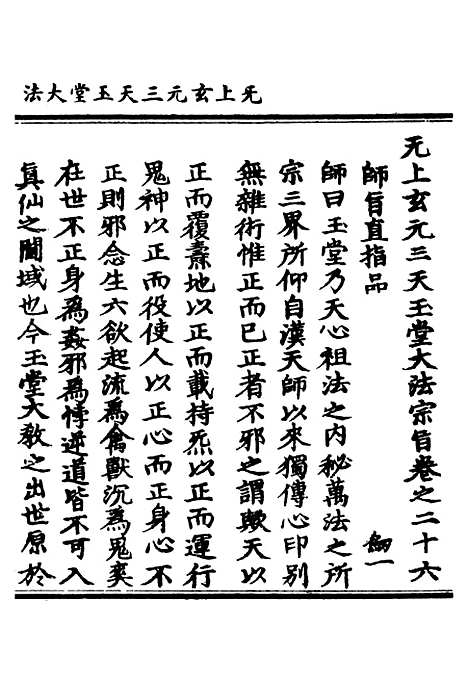 无上玄元三天玉堂大法
无上玄元三天玉堂大法宗旨卷之二十六
師旨直指品 伤一
師曰玉堂乃天心祖法之内秘萬法之所
宗三界所仰自漢天師以來獨傳心印别
無雜術惟正而已正者不邪之謂歟天以
正而覆燾地以正而載持炁以正而運行
鬼神以正而役使人以正心而正身心不
正則邪念生六欲起流為禽獸沉為鬼耎
在世不正身為姦邪為悖逆道皆不可入
真仙之閫域也今玉堂大教之出世原於